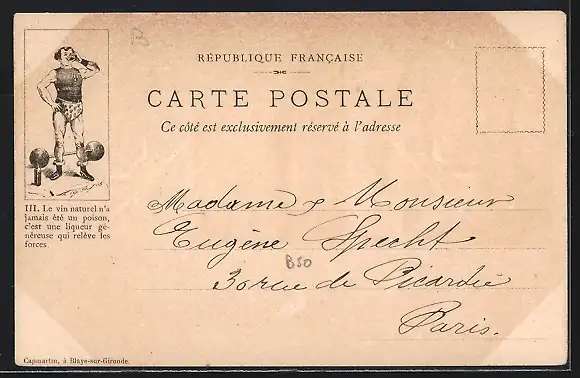 B
RÉPUBLIQUE FRANÇAISE
CARTE POSTALE
Ce côté est exclusivement réservé à l'adresse
III. Le vin naturel n'a
jamais été un poison,
c'est une liqueur gé-
néreuse qui relève les
forces.
Madame & Monsieur
Eugène Specht
B50
30 rue de Picardie
Paris.
Capmartin, à Blaye-sur-Gironde.